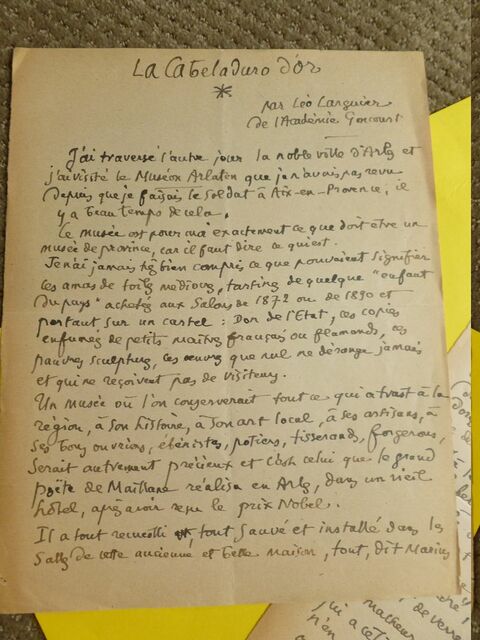 La Cabeladuro d'or
*
par Léo Larguier
de l'Académie Goncourt
J'ai traversé l'autre jour la noble ville d'Arles et
j'ai visité le Museon Arlaten que je n'avais pas revu
depuis que je faisais le soldat à Aix-en-Provence, il
y a beau temps de cela.
Ce musée est pour moi exactement ce que doit être un
musée de province, car il faut dire ce qui est.
Je n'ai jamais très bien compris ce que pouvaient signifier
ces amas de toiles médiocres, tartines de quelque "enfant
du pays" achetés aux Salons de 1872 ou de 1890 et
portant sur un cartel : Don de l'Etat, ces copies
enfumées de petits maîtres français ou flamands, ces
pauvres sculptures, ces œuvres que nul ne dérange jamais
et qui ne reçoivent pas de visiteurs.
Un musée où l'on conserverait tout ce qui a trait à la
région, à son histoire, à son art local, à ses artisans, à
ses bons ouvriers, ébénistes, potiers, tisserands, forgerons,
serait autrement précieux et c'est celui que le grand
poète de Maillane réalisa en Arles, dans un vieil
hôtel, après avoir reçu le prix Nobel.
Il a tout recueilli, tout sauvé et installé dans les
salles de cette ancienne et belle maison, tout, dit Marius